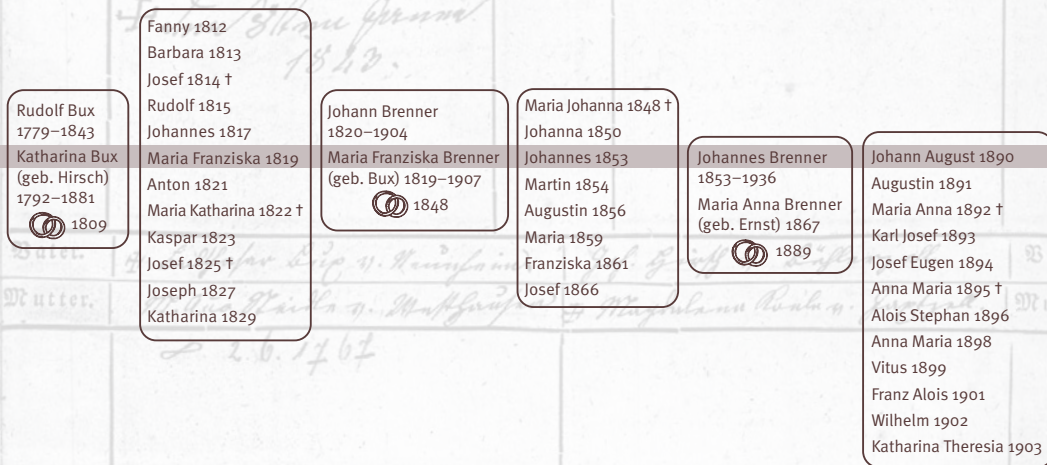 Rudolf Bux
1779–1843
Katharina Bux
(geb. Hirsch)
1792–1881
1809
Fanny 1812
Barbara 1813
Josef 1814 †
Rudolf 1815
Johannes 1817
Maria Franziska 1819
Anton 1821
Maria Katharina 1822 †
Kaspar 1823
Josef 1825 †
Joseph 1827
Katharina 1829
Johann Brenner
1820–1904
Maria Franziska Brenner
(geb. Bux) 1819–1907
1848
Maria Johanna 1848 †
Johanna 1850
Johannes 1853
Martin 1854
Augustin 1856
Maria 1859
Franziska 1861
Josef 1866
Johannes Brenner
1853–1936
Maria Anna Brenner
(geb. Ernst) 1867
1889
Johann August 1890
Augustin 1891
Maria Anna 1892 †
Karl Josef 1893
Josef Eugen 1894
Anna Maria 1895 †
Alois Stephan 1896
Anna Maria 1898
Vitus 1899
Franz Alois 1901
Wilhelm 1902
Katharina Theresia 1903
1843.
Vater.
Mutter.